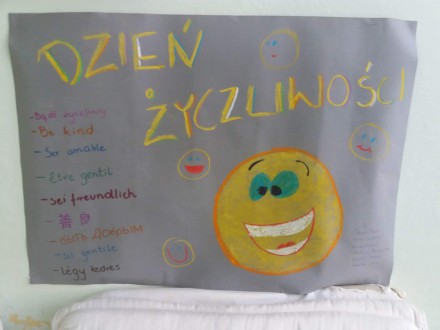 DZIEŃ
ŻYCZLIWOŚCI
- Bądź życzliwy
- Be kind
- Ser amable
- Etre gentil
- Sei freundlich
- БЫТЬ ДОБРЫМ
- gentile
- légy kedves